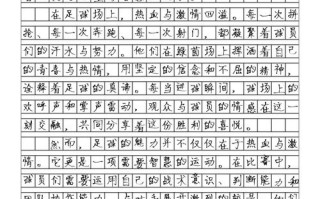 在足球场上，热血与激情四溢。每一次拼
抢、每一次奔跑、每一次射门，都凝聚着球员
们的汗水与努力。他们在绿茵场上挥洒着自己
的青春与热情，用坚定的信念和不屈的精神，
诠释着足球的真谛。每当进球瞬间，球场上的
欢呼声和掌声雷动，观众与球员的情感在这一
刻交融，共同分享着这份胜利的喜悦。
然而，足球的魅力并不仅仅在于热血与激
情。它更是一项需要智慧的运动。在比赛中，
球员们需要运用自己的战术意识、判断能力和